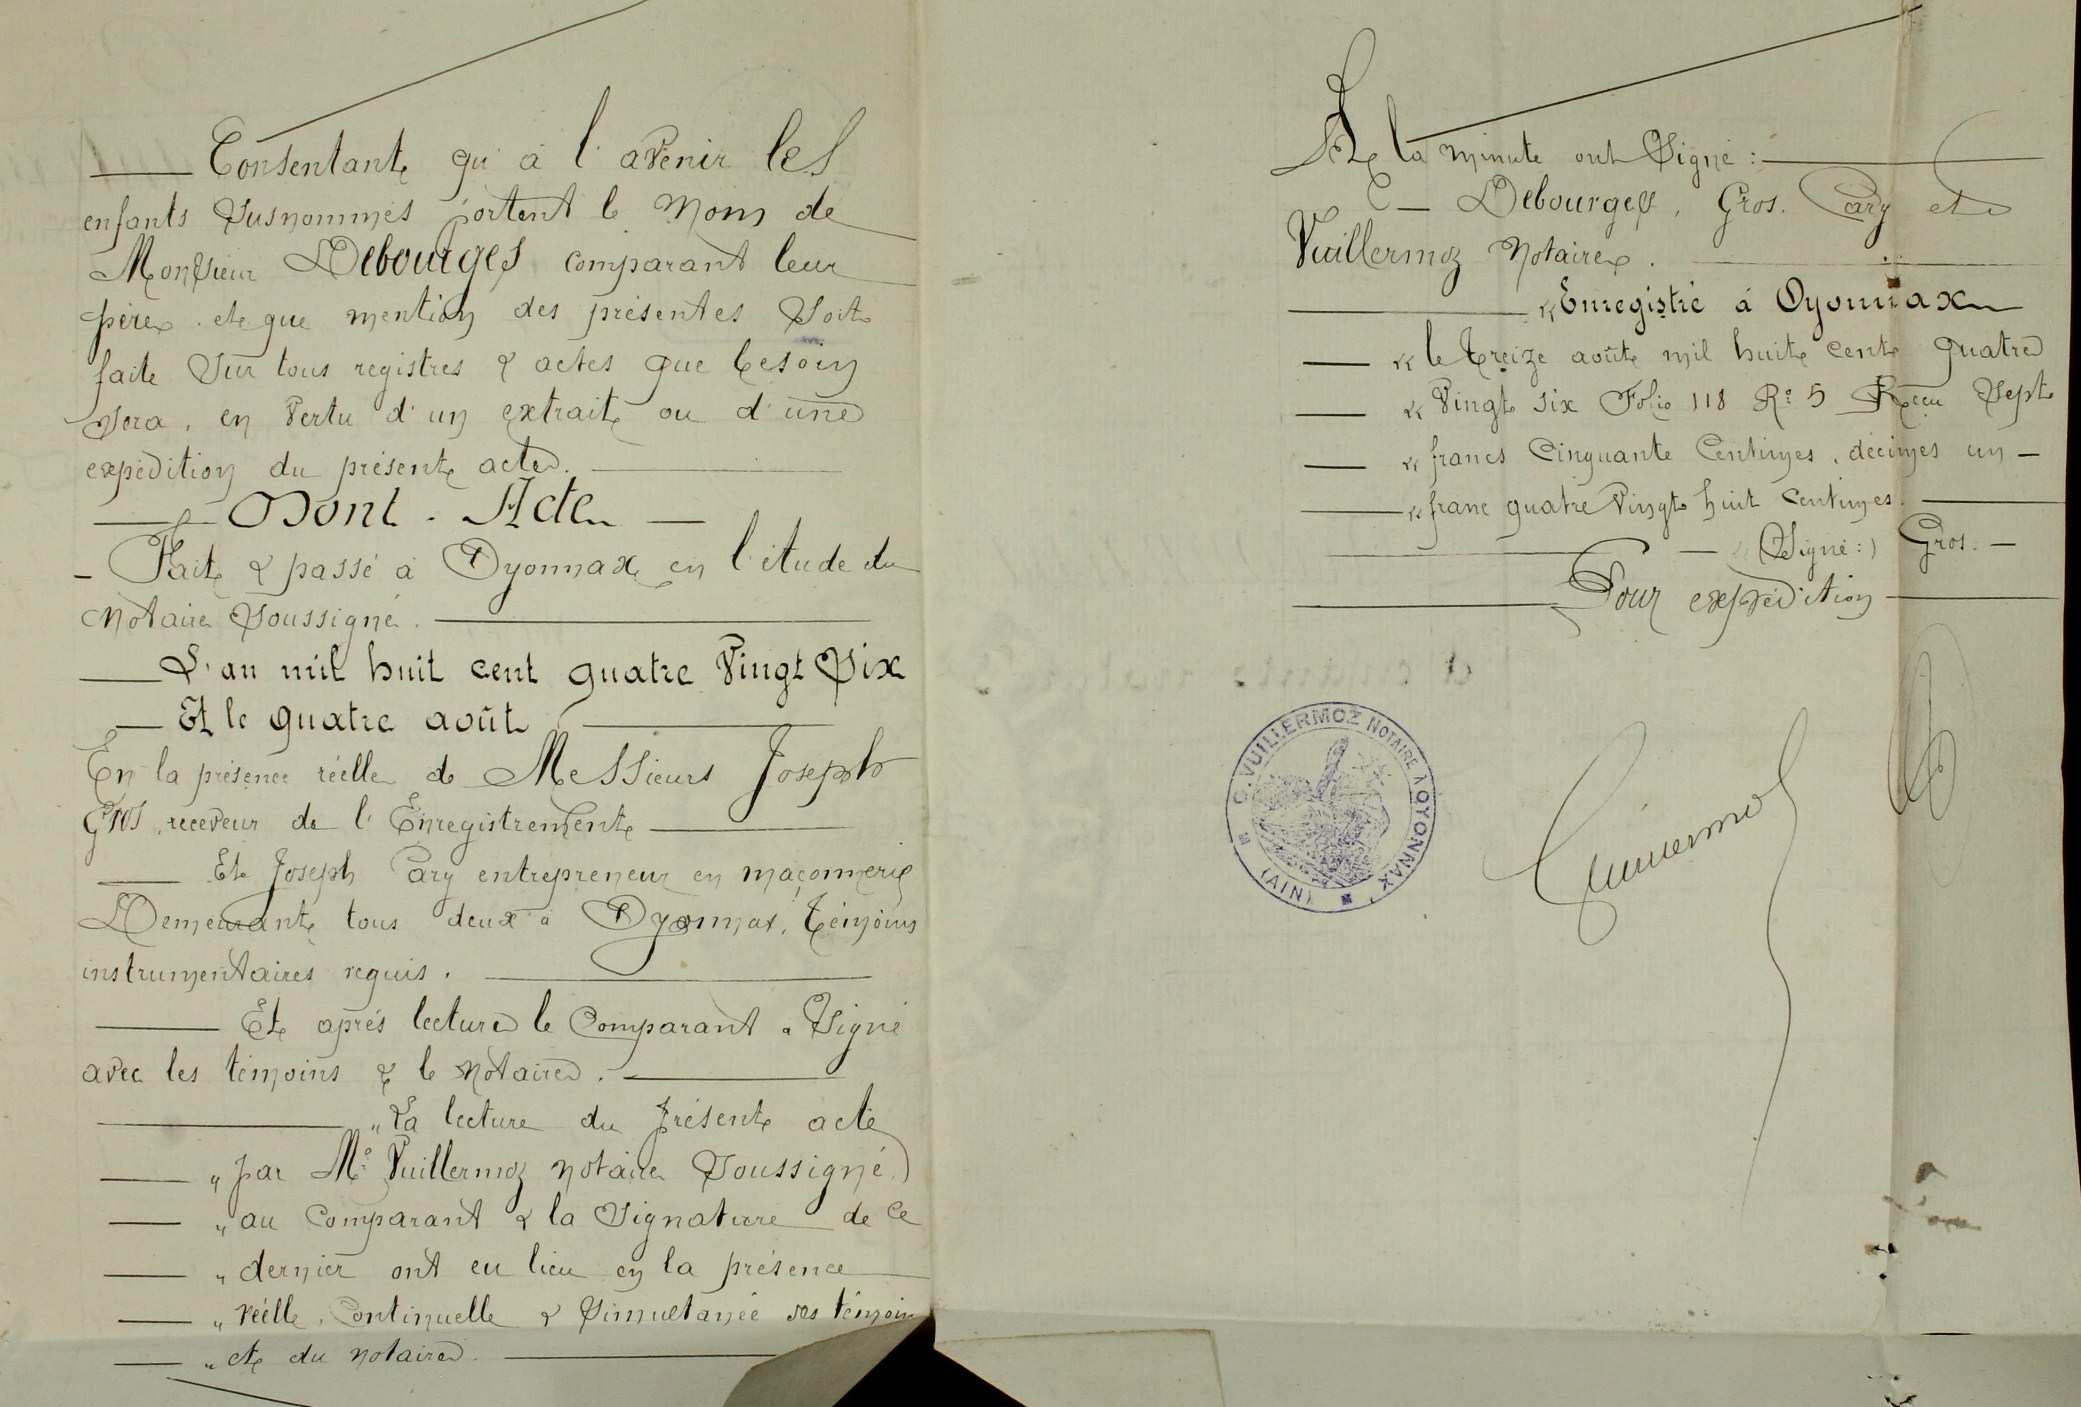 Consentant qu'à l'avenir les
enfants susnommés portent le nom de
Monsieur Debourges comparant leur
père. et que mention des présentes soit
faite sur tous registres & actes que besoin
sera, en vertu d'un extrait ou d'une
expédition du présent acte.
Dont - Acte
Fait & passé à Oyonnax en l'étude du
notaire soussigné.
L'an mil huit cent quatre vingt six
Et le quatre août
En la présence réelle de Messieurs Joseph
Gros, receveur de l'Enregistrement
Et Joseph Pary entrepreneur en maçonnerie
Demeurant tous deux à Oyonnax, témoins
instrumentaires requis.
Et après lecture le comparant a signé
avec les témoins & le notaire.
"La lecture du présent acte
"par Me Vuillermoz notaire soussigné
"au comparant & la signature de ce
"dernier ont eu lieu en la présence
"réelle, continuelle & simultanée des témoin
"et du notaire.
la minute ont signé :
Debourges, Gros. Pary et
Vuillermoz notaire.
"Enregistré à Oyonnax
"le treize août mil huit cent quatre
"vingt six Folio 118 Ro 5 Reçu sept
"francs cinquante centimes, décimes un
"franc quatre vingt huit centimes.
(Signé :) Gros.
Pour expédition
C. VUILLERMOZ NOTAIRE A OYONNAX
(AIN)
Vuillermoz